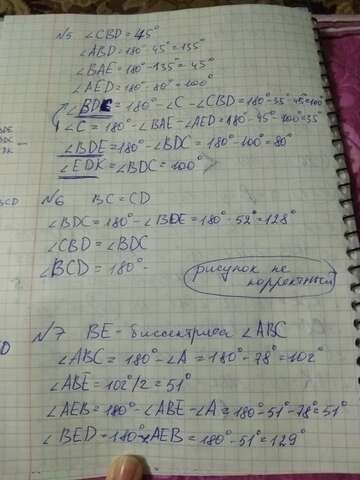 N5 ∠CBD = 45°
∠ABD = 180° - 45° = 135°
∠BAE = 180° - 135° = 45°
∠AED = 180° - 80° = 100°
∠BDC = 180° - ∠C - ∠CBD = 180° - 35° - 45° = 100°
∠C = 180° - ∠BAE - ∠AED = 180° - 45° - 100° = 35°
∠BDE = 180° - ∠BDC = 180° - 100° = 80°
∠EDK = ∠BDC = 100°
N6 BC = CD
∠BDC = 180° - ∠BDE = 180° - 52° = 128°
∠CBD = ∠BDC
∠BCD = 180° -
рисунок не
корректный
N7 BE - биссектриса ∠ABC
∠ABC = 180° - ∠A = 180° - 78° = 102°
∠ABE = 102°/2 = 51°
∠AEB = 180° - ∠ABE - ∠A = 180° - 51° - 78° = 51°
∠BED = 180° - ∠AEB = 180° - 51° = 129°